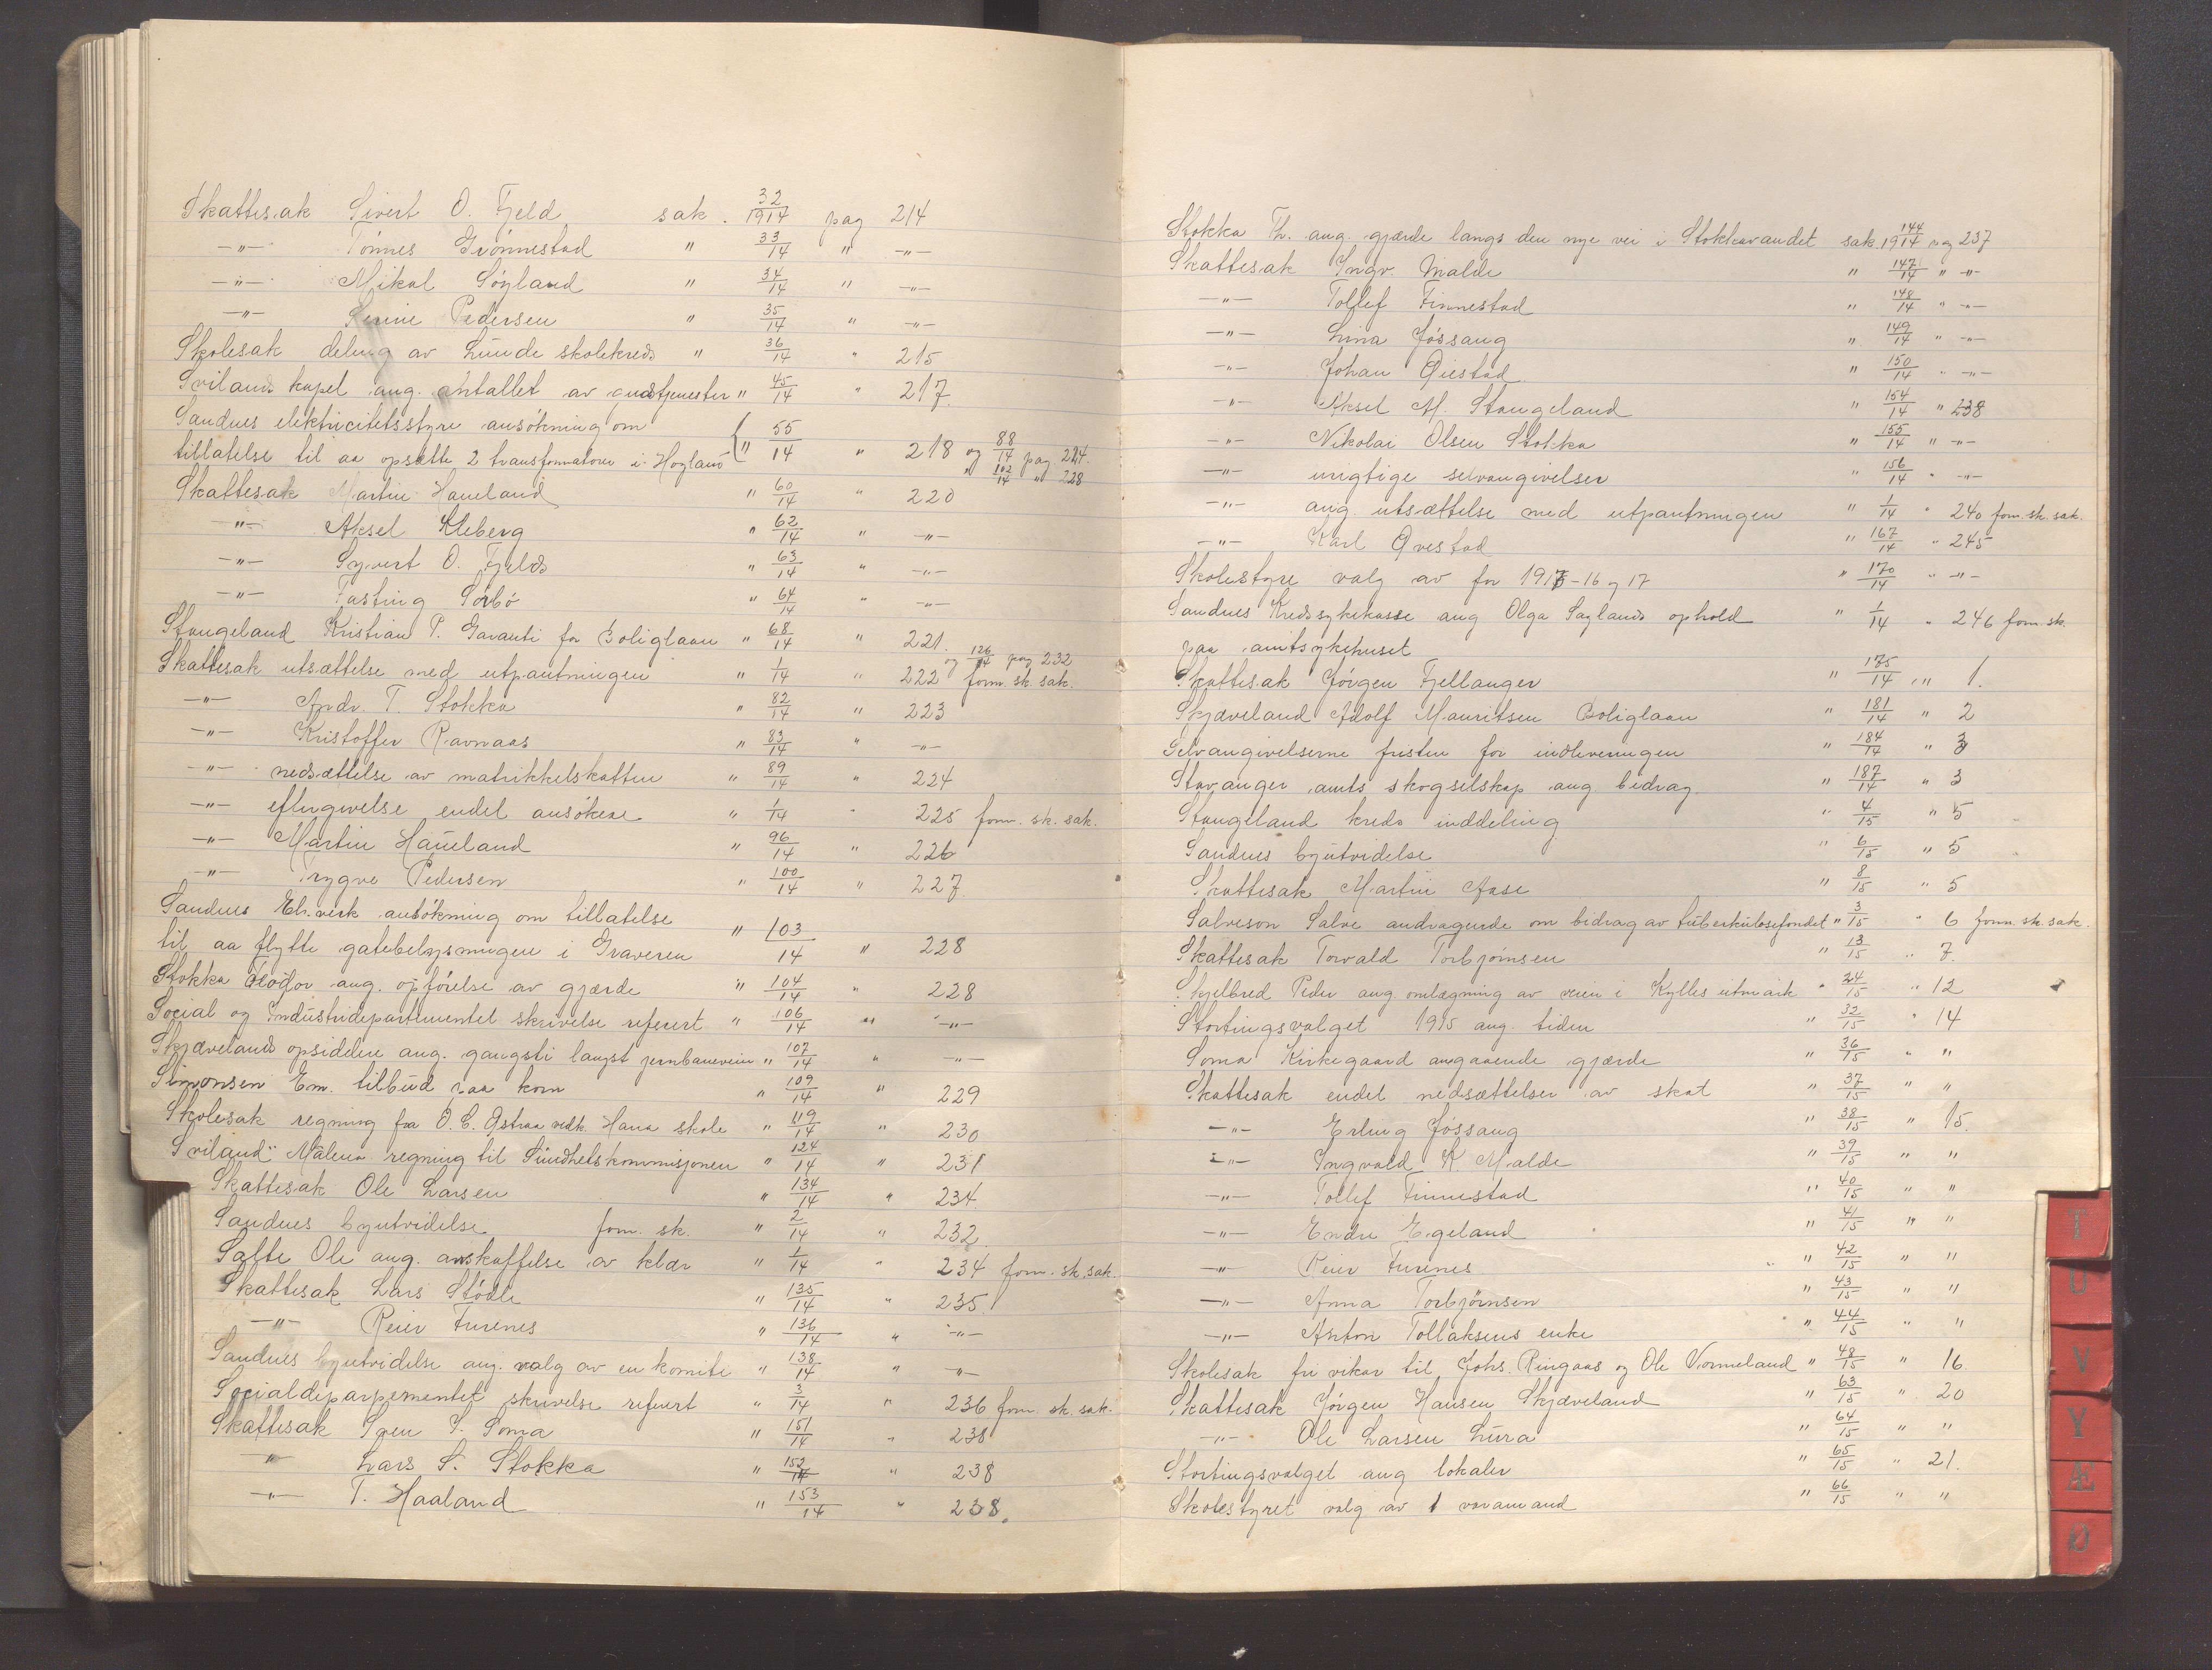 Skattesak Sivert O. Fjeld sak. 32/1914 pag 214
-"- Tönnes Grönnestad " 33/14 " -"-
-"- Mikal Söyland " 34/14 " -"-
-"- Serine Pedersen " 35/14 " -"-
Skolesak deling av Lunde skolekreds " 36/14 " 215
Sviland kapel ang. antallet av gudstjenester " 45/14 " 217.
Sandnes elektricitetsstyre ansökning om
tillatelse til aa opsætte 2 transformatorer i Høyland " 55/14 " 218 og 88/14 pag 224.
" 102/14 " 228
Skattesak Martin Haueland " 60/14 " 220
-"- Aksel Kleberg " 62/14 " -"-
-"- Syvert O. Fjeld " 63/14 " -"-
-"- Tasting Sörbö " 64/14 " -"-
Stangeland Kristian P. Garanti for Boliglaan " 68/14 " 221. og 126/14 pag 232
Skattesak utsættelse med utpantningen " 1/14 " 222 form. sk. sak.
-"- Andr. T. Stokka " 82/14 " 223
-"- Kristoffer Ravnaas " 83/14 " -"-
-"- nedsættelse av matrikkelskatten " 89/14 " 224
-"- eftergivelse endel ansökere " 1/14 " 225 form. sk. sak.
-"- Martin Haueland " 96/14 " 226
-"- Trygve Pedersen " 100/14 " 227
Sandnes El. verk ansökning om tillatelse
til aa flytte gatebelysningen i Graveren " 103/14 " 228
Stokka Teodor ang. opförelse av gjærde " 104/14 " 228
Social og Industridepartementet skrivelse referert " 106/14 " -"-
Skjævelands opsiddere ang. gangsti langst jernbaneveien " 107/14 " -"-
Simonsen Em. tilbud paa korn " 109/14 " 229
Skolesak regning fra O. C. Østraa vedk. Hana skole " 119/14 " 230
Sviland Malena regning til Sundhetskommisjonen " 124/14 " 231
Skattesak Ole Larsen " 134/14 " 234
Sandnes byutvidelse form. sk. " 2/14 " 232
Salte Ole ang. anskaffelse av klær " 1/14 " 234 form. sk. sak.
Skattesak Lars Stödle " 135/14 " 235
-"- Reier Furenes " 136/14 " -"-
Sandnes byutvidelse ang. valg av en komite " 138/14 " -"-
Socialdeparpementet skrivelse referert " 3/14 " 236 form. sk. sak.
Skattesak Sven S. Soma " 151/14 " 238
-"- Lars S. Stokka " 152/14 " 238
-"- T. Haaland " 153/14 " 238.
Stokka Th. ang. gjærde langs den nye vei i Stokkavandet sak. 144/1914 pag 237
Skattesak Ingv. Malde " 147/14 " -"-
-"- Tollef Finnestad " 148/14 " -"-
-"- Lina Jössang " 149/14 " -"-
-"- Johan Öiestad " 150/14 " -"-
-"- Aksel M. Stangeland " 154/14 " 238
-"- Nikolai Olsen Stokka " 155/14 " -"-
-"- urigtige selvangivelser " 156/14 " -"-
-"- ang. utsættelse med utpantningen " 1/14 " 240 form. sk. sak.
-"- Karl Qvestad " 167/14 " 245
Skolestyre valg av for 1915-16 og 17 " 170/14 " -"-
Sandnes Kredssykekasse ang Olga Saglands ophold " 1/14 " 246 form. sk.
paa amtsykehuset
Skattesak Jörgen Fjellanger " 175/14 " 1.
Skjæveland Adolf Mauritsen Boliglaan " 181/14 " 2
Selvangivelserne fristen for indleveringen " 184/14 " 3
Stavanger amts skogselskap ang. bidrag. " 187/14 " 3
Stangeland kreds inddeling " 4/15 " 5
Sandnes byutvidelse " 6/15 " 5
Skattesak Martin Aase " 8/15 " 5
Salveson Salve andragende om bidrag av tuberkulosefondet " 3/15 " 6 form. sk. sak.
Skattesak Torvald Torbjørnsen " 13/15 " 7.
Skjelbred Peder ang. omlægning av veien i Kylles utmark " 24/15 " 12
Stortingsvalget 1915 ang. tiden " 32/15 " 14
Soma Kirkegaard angaaende gjærde " 36/15 " "
Skattesak endel nedsættelser av skat " 37/15 " "
-"- Erling Jössang " 38/15 " 15.
-"- Ingvald K. Malde " 39/15 " "
-"- Tollef Finnestad " 40/15 " "
-"- Endre Egeland " 41/15 " "
-"- Reier Furenes " 42/15 " "
-"- Anna Torbjørnsen " 43/15 " "
-"- Anton Tollaksens enke " 44/15 " "
Skolesak fri vikar til Johs. Ringaas og Ole Varmeland " 48/15 " 16
Skattesak Jörgen Hansen Skjæveland " 63/15 " 20
-"- Ole Larsen Lura " 64/15 " "
Stortingsvalget ang lokaler " 65/15 " 21.
Skolestyret valg av 1 varamand " 66/15 " "
T
U
V
Y
Æ
Ø